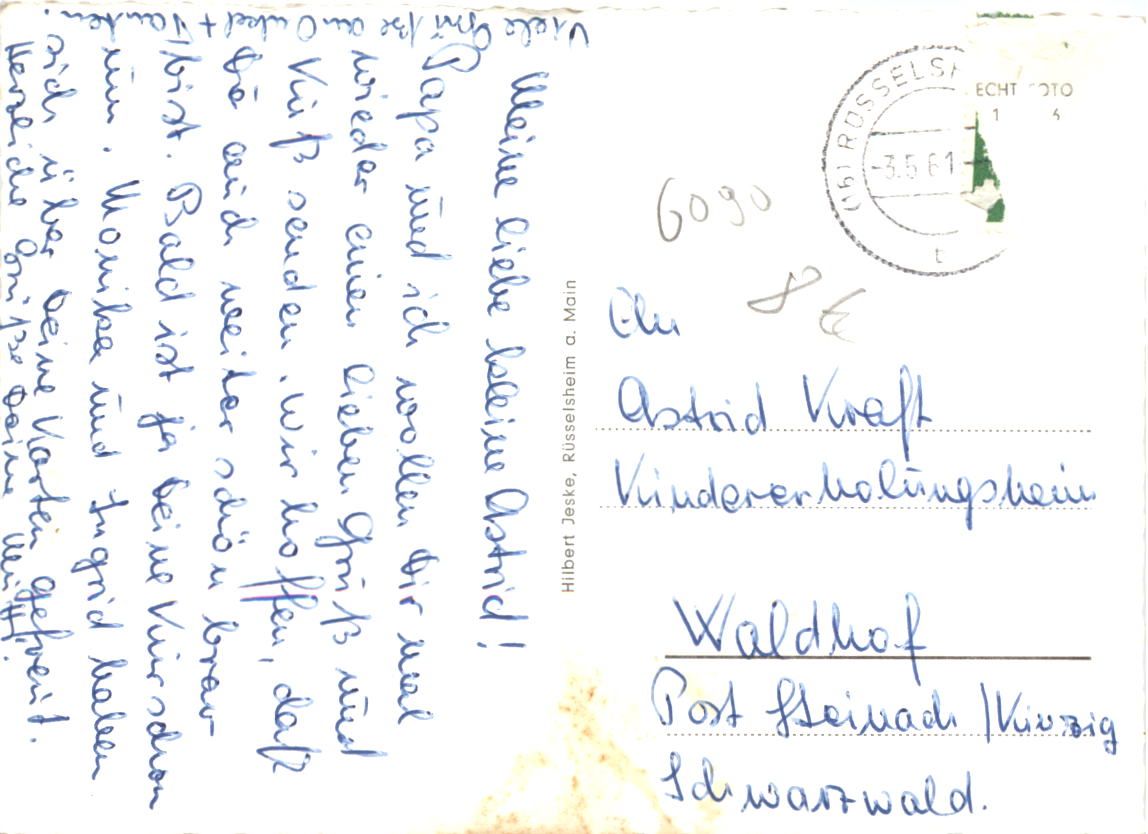 Meine liebe kleine Astrid!
Papa und ich wollen Dir mal
wieder einen lieben Gruß und
Kuß senden. Wir hoffen, daß
Du auch weiter schön brav
bist. Bald ist ja Deine Kur schon
um. Monika und Ingrid haben
sich über Deine Karten gefreut.
Herzliche Grüße Deine Mutti.
Viele Grüße an Onkel + Tanten.
Hilbert Jeske, Rüsselsheim a. Main
(16) RÜSSELSH
-3.5.61
t
ECHT FOTO
1 6
6090
8 €
An
Astrid Kraft
Kindererholungsheim
Waldhof
Post Steinach /Kinzig
Schwarzwald.